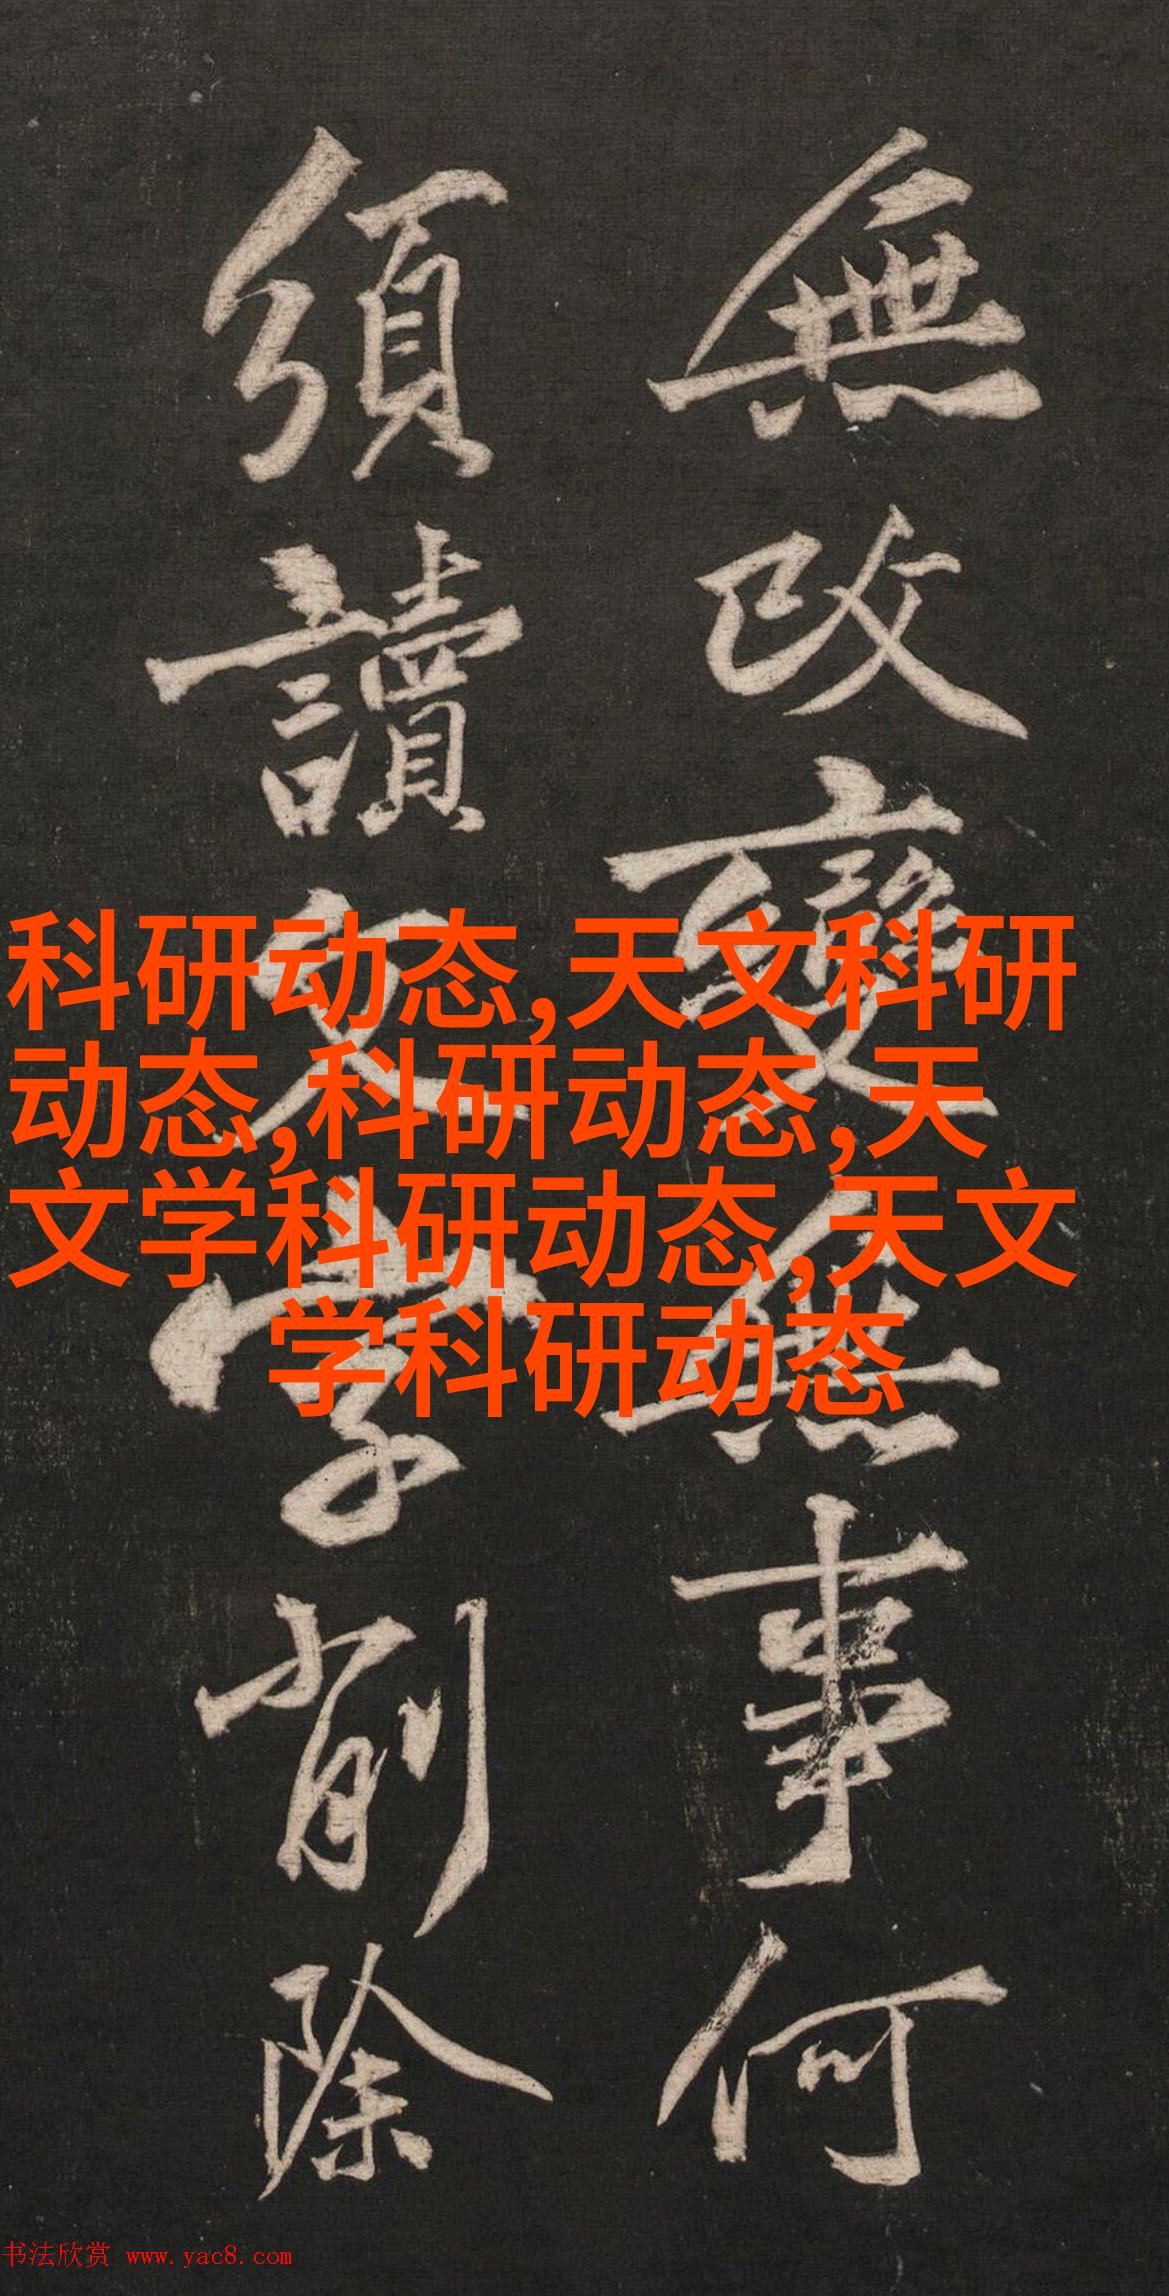 無改變無事何
須讀文字削除
科研动态,天文科研
动态,科研动态,天
文学科研动态,天文
学科研动态
书法欣赏 www.yac8.com